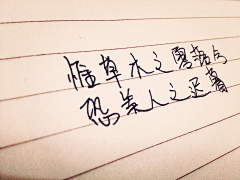 惟草木之零落兮
恐美人之迟暮